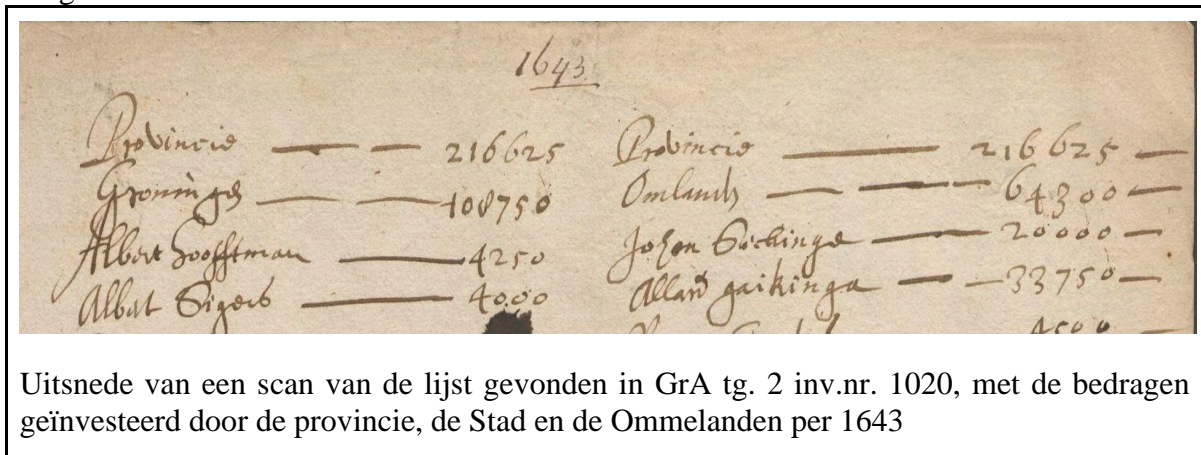 1643
Provincie — — 216625
Groningen — — 108750
Albert Hoofftman — 4250
Albert Sigers — 4000
Provincie — 216625 —
Omlands — — — 64300 —
Johan Sickinge — 20000 —
Allard gaikinga — — 33750 —
4500 —
Uitsnede van een scan van de lijst gevonden in GrA tg. 2 inv.nr. 1020, met de bedragen
geïnvesteerd door de provincie, de Stad en de Ommelanden per 1643